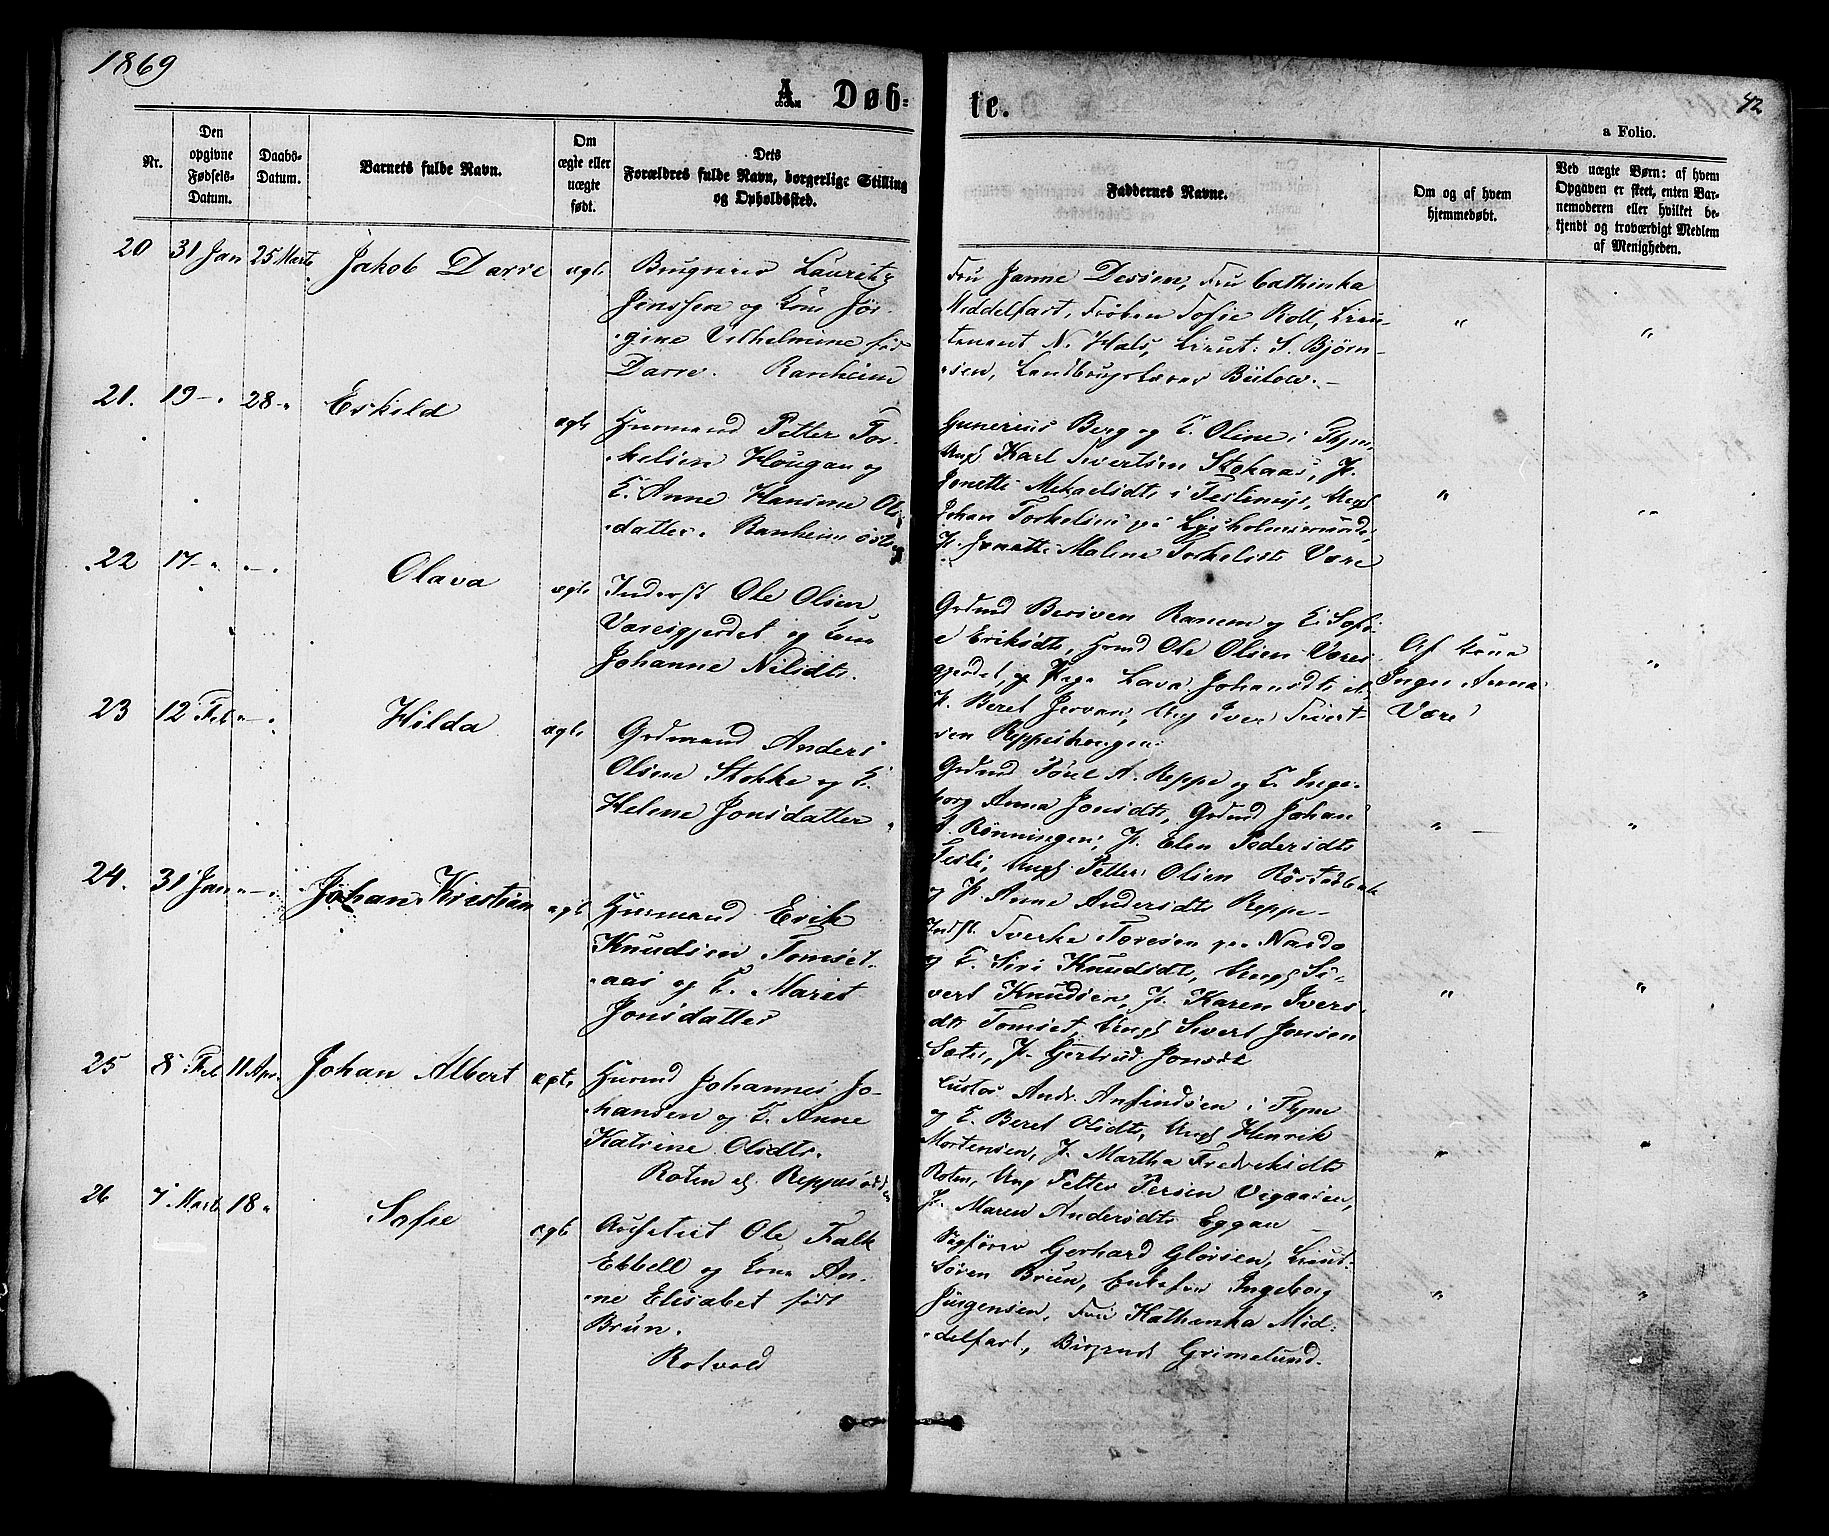 1869
A Døb-
te.
42
a Folio.
Nr.
Den
opgivne
Fødsels-
Datum.
Daabs-
Datum.
Barnets fulde Navn.
Om
ægte eller
uægte
født.
Dets
Forældres fulde Navn, borgerlige Stilling
og Opholdssted.
Faddernes Navne.
Om og af hvem
hjemmedøbt.
Ved uægte Børn: af hvem
Opgaven er skeet, enten Bar-
nemoderen eller hvilket be-
kjendt og troværdigt Medlem
af Menigheden.
20 31 Jan 25 Marts Jakob Darre ægte
Lauritz
Jenssen og Kone Jør-
gine Vilhelmine født
Darre. Ranheim
Fru Janne Fru Cathinka
Middelfart, Frøken Sofie Roll, Lieu-
tenant N. Hals, Lieut: S. Bjørn-
sen, Landbrugslærer Bülow. -
" "
21. 19 - " 28 - " Eskild ægte
Husmand Petter Tor-
kelsen Hougan og
K. Anne Hansine Ols
datter. Ranheim østre
Gunerius Berg og K. Oline i
Ungk Karl Sivertsen Stokaas, P.
Jonetta Mikaelsdt i Ungk
Johan Torkelsen på
P. Jonetta Malene Torkelsdt Være
" "
22 17 - " " - " Olava ægte
Inderst Ole Olsen
Væresgjerdet og Kone
Johanne Nilsdt.
Grdmd Ranem og K. Sofi-
e Eriksdt, Husmd Ole Olsen Væres
gjerdet, og Pige Lava Johansdt
P. Beret Jervan, Ung Iver Sivert-
sen Reppeshougen.
Af Kone
Inger Anna
Være
"
23 12 Feb " - " Hilda ægte
Grdmand Anders
Olsen Stokke og K.
Helene Jonsdatter "
Grdmd A. Reppe og K. Inge-
borg Anna Jonsdt, Grdmd Johan
A. Rønningen, P. Elen Pedersdt
Ungk Petter Olsen Røstadbak
og P. Anne Andersdt Reppe -
" "
24. 31 Jan " - " Johan Kristian ægte
Husmand Erik
Knudsen Tomset-
aas og K. Marit
Jonsdatter
Indst. Sverke Toresen paa Nardo
og K. Siri Knudsdt, Ungk Si-
vert Knudsen, P. Karen Ivers
dt Tomset, Ungk Sivert Jonsen
Sæter, P. Gertrud Jonsdt
" "
25 8 Feb 11 Apr. Johan Albert ægte
Husmd Johannes Jo-
hansen og K. Anne
Katrine Olsdt.
Roten
Andr. Anfindsen i
og K. Beret Olsdt, Ungk Henrik
Mortensen, P. Martha Fredriksdt
Roten, Ung Petter Persen
P. Maren Andersdt Eggan -
" "
26 7 Marts 18 " Sofie ægte
Ole Falk
Ebbell og Kone An-
ne Elisabet født
Brun.
Rotvold
Sagfører Gerhard Lieut:
Søren Brun, Ingeborg
Jürgensen, Fru Kathinka Mid-
delfart, Grimelund.
" "